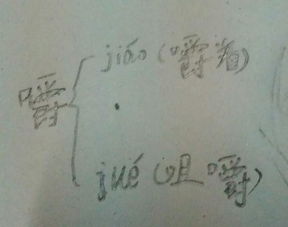 jiáo (嚼着)
嚼
jué (咀嚼)